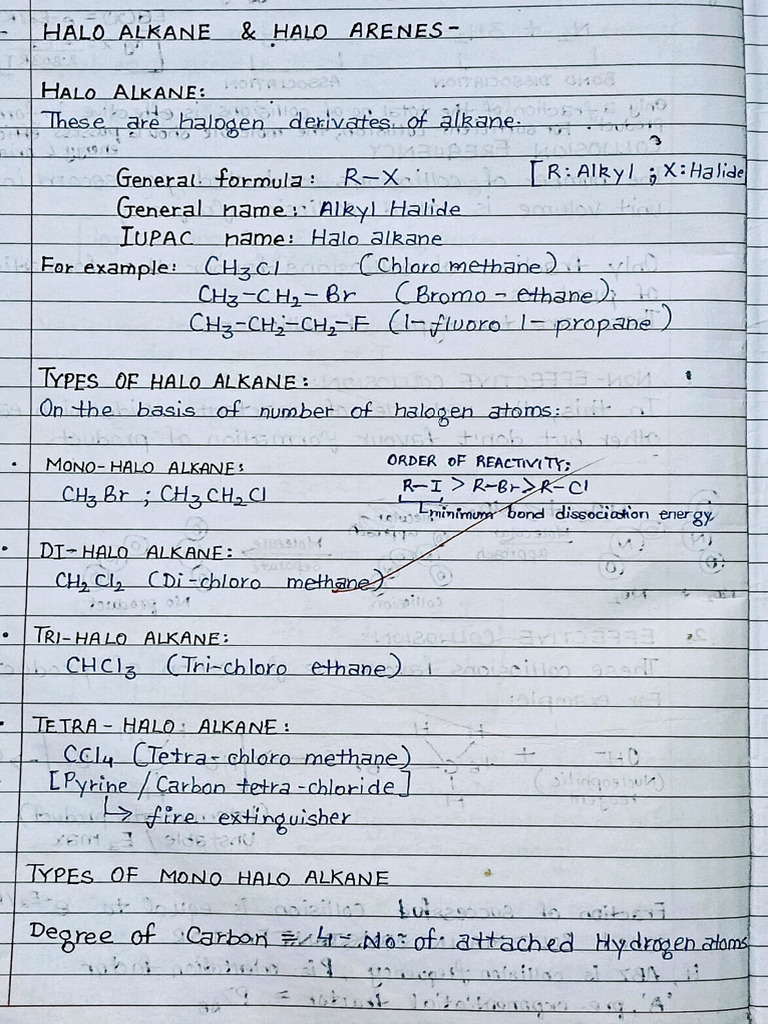 HALO ALKANE & HALO ARENES-
HALO ALKANE:
These are halogen derivates of alkane.
General formula: R-X [R: Alkyl ; X: Halide]
General name: Alkyl Halide
IUPAC name: Halo alkane
For example: CH₃Cl (Chloro methane) ;
CH₃-CH₂-Br (Bromo-ethane);
CH₃-CH₂-CH₂-F (1-fluoro 1-propane)
TYPES OF HALO ALKANE:
On the basis of number of halogen atoms:
• MONO-HALO ALKANE:
CH₃Br ; CH₃CH₂Cl
ORDER OF REACTIVITY:
R-I > R-Br > R-Cl
minimum bond dissociation energy
• DI-HALO ALKANE:
CH₂Cl₂ (Di-chloro methane)
• TRI-HALO ALKANE:
CHCl₃ (Tri-chloro ethane)
• TETRA-HALO ALKANE:
CCl₄ (Tetra-chloro methane)
[Pyrine / Carbon tetra-chloride]
↳ fire extinguisher
TYPES OF MONO HALO ALKANE
Degree of Carbon = 4 - No. of attached Hydrogen atoms